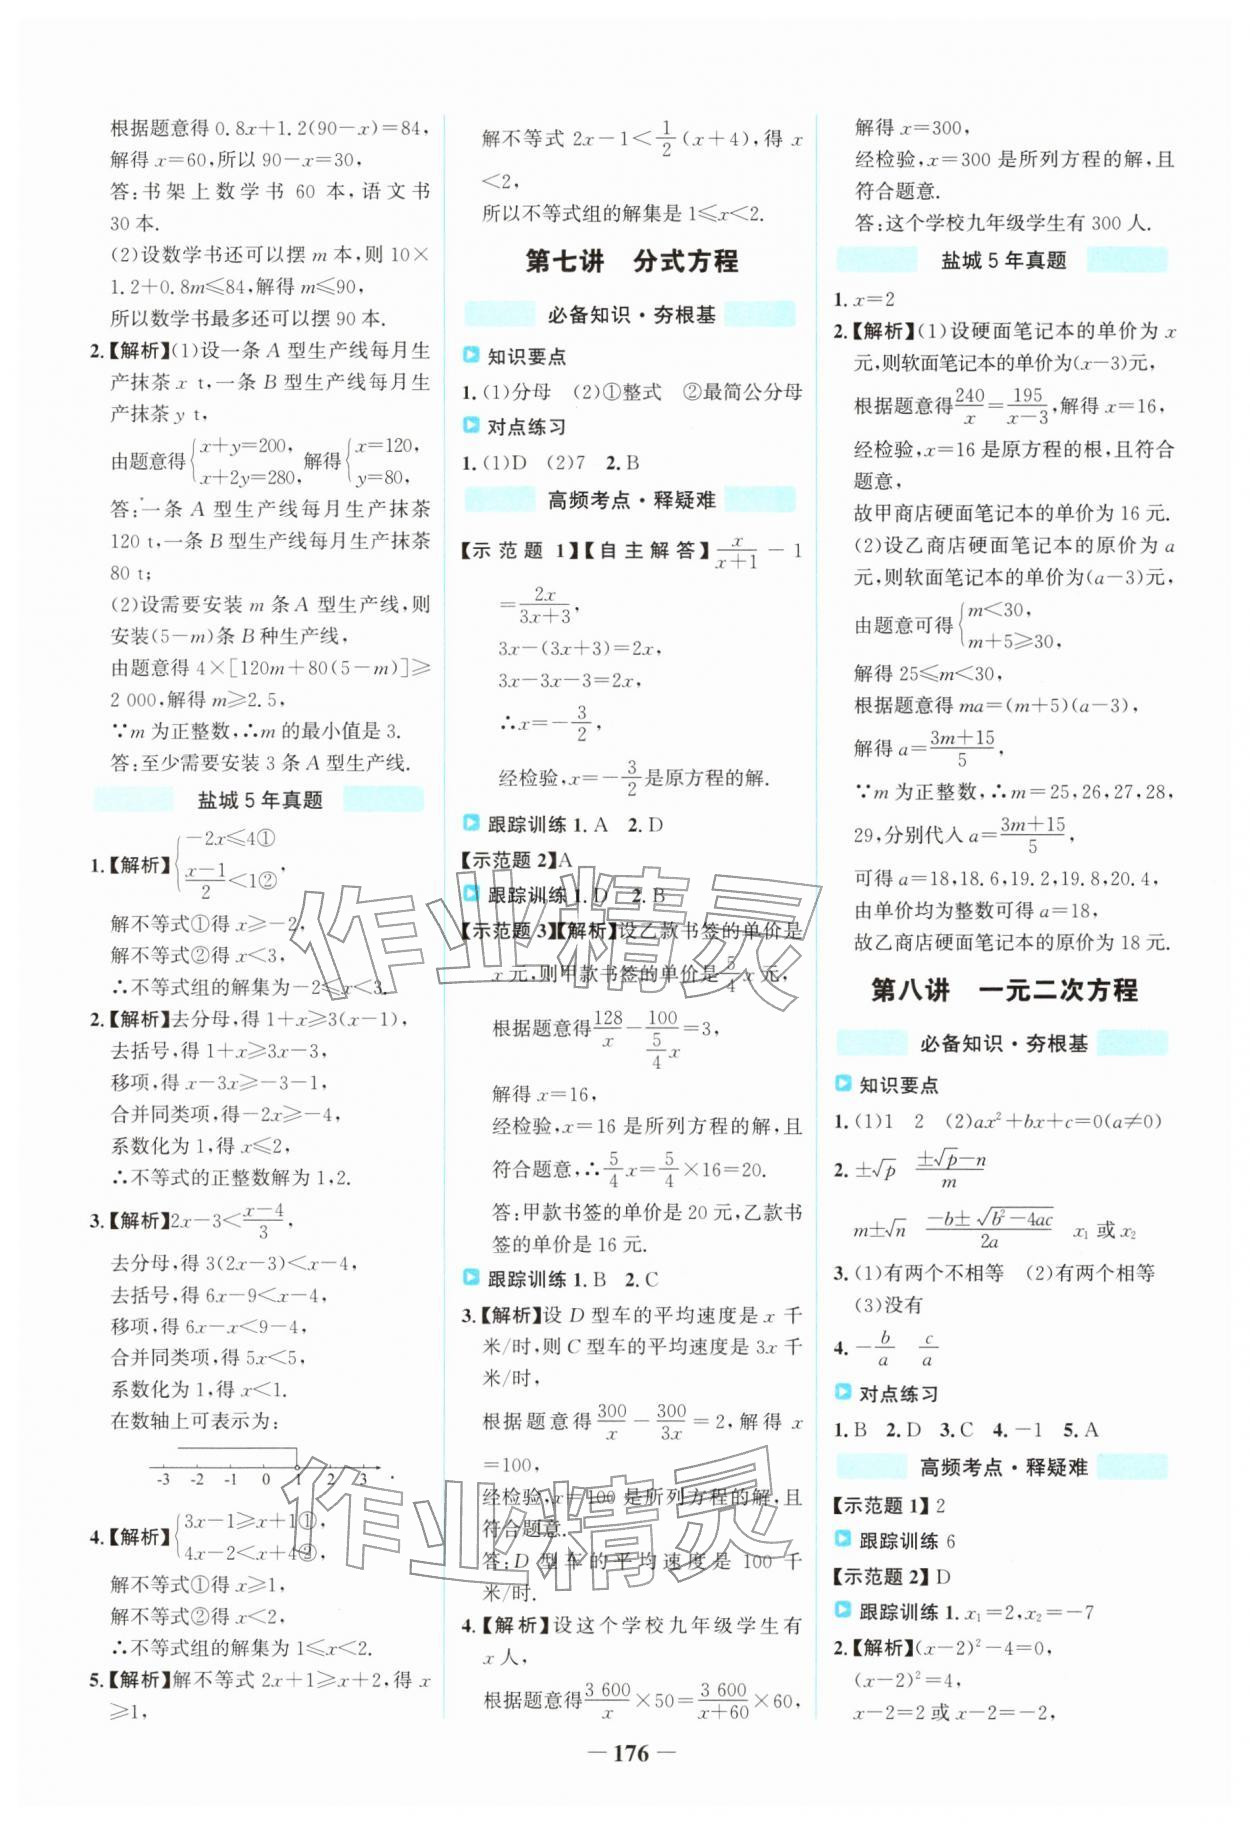 根据题意得 0.8x+1.2(90-x)=84,
解得 x=60,所以 90-x=30,
答:书架上数学书 60 本,语文书
30 本.
(2)设数学书还可以摆 m 本,则 10×
1.2+0.8m≤84,解得 m≤90,
所以数学书最多还可以摆 90 本.
2.【解析】(1)设一条 A 型生产线每月生
产抹茶 x t,一条 B 型生产线每月生
产抹茶 y t,
由题意得{x+y=200, x+2y=280, 解得{x=120, y=80,
答:一条 A 型生产线每月生产抹茶
120 t,一条 B 型生产线每月生产抹茶
80 t;
(2)设需要安装 m 条 A 型生产线,则
安装(5-m)条 B 种生产线,
由题意得 4×[120m+80(5-m)]≥
2 000,解得 m≥2.5,
∵m 为正整数,∴m 的最小值是 3.
答:至少需要安装 3 条 A 型生产线.
盐城 5 年真题
1.【解析】{-2x≤4① (x-1)/2<1②,
解不等式①得 x≥-2,
解不等式②得 x<3,
∴不等式组的解集为-2≤x<3.
2.【解析】去分母,得 1+x≥3(x-1),
去括号,得 1+x≥3x-3,
移项,得 x-3x≥-3-1,
合并同类项,得-2x≥-4,
系数化为 1,得 x≤2,
∴不等式的正整数解为 1,2.
3.【解析】2x-3<(x-4)/3,
去分母,得 3(2x-3)<x-4,
去括号,得 6x-9<x-4,
移项,得 6x-x<9-4,
合并同类项,得 5x<5,
系数化为 1,得 x<1.
在数轴上可表示为:
-3 -2 -1 0 1 2 3 .
4.【解析】{3x-1≥x+1① 4x-2<x+4②,
解不等式①得 x≥1,
解不等式②得 x<2,
∴不等式组的解集为 1≤x<2.
5.【解析】解不等式 2x+1≥x+2,得 x
≥1,
解不等式 2x-1<1/2(x+4),得 x
<2,
所以不等式组的解集是 1≤x<2.
第七讲 分式方程
必备知识·夯根基
知识要点
1.(1)分母 (2)①整式 ②最简公分母
对点练习
1.(1)D (2)7 2.B
高频考点·释疑难
【示范题 1】【自主解答】x/(x+1)-1
=2x/(3x+3),
3x-(3x+3)=2x,
3x-3x-3=2x,
∴x=-3/2,
经检验,x=-3/2是原方程的解.
跟踪训练 1.A 2.D
【示范题 2】A
跟踪训练 1.D 2.B
【示范题 3】【解析】设乙款书签的单价是
x 元,则甲款书签的单价是5/4 x 元,
根据题意得128/x-100/(5/4 x)=3,
解得 x=16,
经检验,x=16 是所列方程的解,且
符合题意,∴5/4 x=5/4×16=20.
答:甲款书签的单价是 20 元,乙款书
签的单价是 16 元.
跟踪训练 1.B 2.C
3.【解析】设 D 型车的平均速度是 x 千
米/时,则 C 型车的平均速度是 3x 千
米/时,
根据题意得300/x-300/3x=2,解得 x
=100,
经检验,x=100 是所列方程的解,且
符合题意.
答:D 型车的平均速度是 100 千
米/时.
4.【解析】设这个学校九年级学生有
x 人,
根据题意得3 600/x×50=3 600/(x+60)×60,
解得 x=300,
经检验,x=300 是所列方程的解,且
符合题意.
答:这个学校九年级学生有 300 人.
盐城 5 年真题
1.x=2
2.【解析】(1)设硬面笔记本的单价为 x
元,则软面笔记本的单价为(x-3)元,
根据题意得240/x=195/(x-3),解得 x=16,
经检验,x=16 是原方程的根,且符合
题意,
故甲商店硬面笔记本的单价为 16 元.
(2)设乙商店硬面笔记本的原价为 a
元,则软面笔记本的单价为(a-3)元,
由题意可得{m<30, m+5≥30,
解得 25≤m<30,
根据题意得 ma=(m+5)(a-3),
解得 a=(3m+15)/5,
∵m 为正整数,∴m=25,26,27,28,
29,分别代入 a=(3m+15)/5,
可得 a=18,18.6,19.2,19.8,20.4,
由单价均为整数可得 a=18,
故乙商店硬面笔记本的原价为 18 元.
第八讲 一元二次方程
必备知识·夯根基
知识要点
1.(1)1 2 (2)ax²+bx+c=0(a≠0)
2.±√p (±√p-n)/m
m±√n (-b±√(b²-4ac))/2a x₁ 或 x₂
3.(1)有两个不相等 (2)有两个相等
(3)没有
4.-b/a c/a
对点练习
1.B 2.D 3.C 4.-1 5.A
高频考点·释疑难
【示范题 1】2
跟踪训练 6
【示范题 2】D
跟踪训练 1.x₁=2,x₂=-7
2.【解析】(x-2)²-4=0,
(x-2)²=4,
x-2=2 或 x-2=-2,
— 176 —
作业精灵
作业精灵